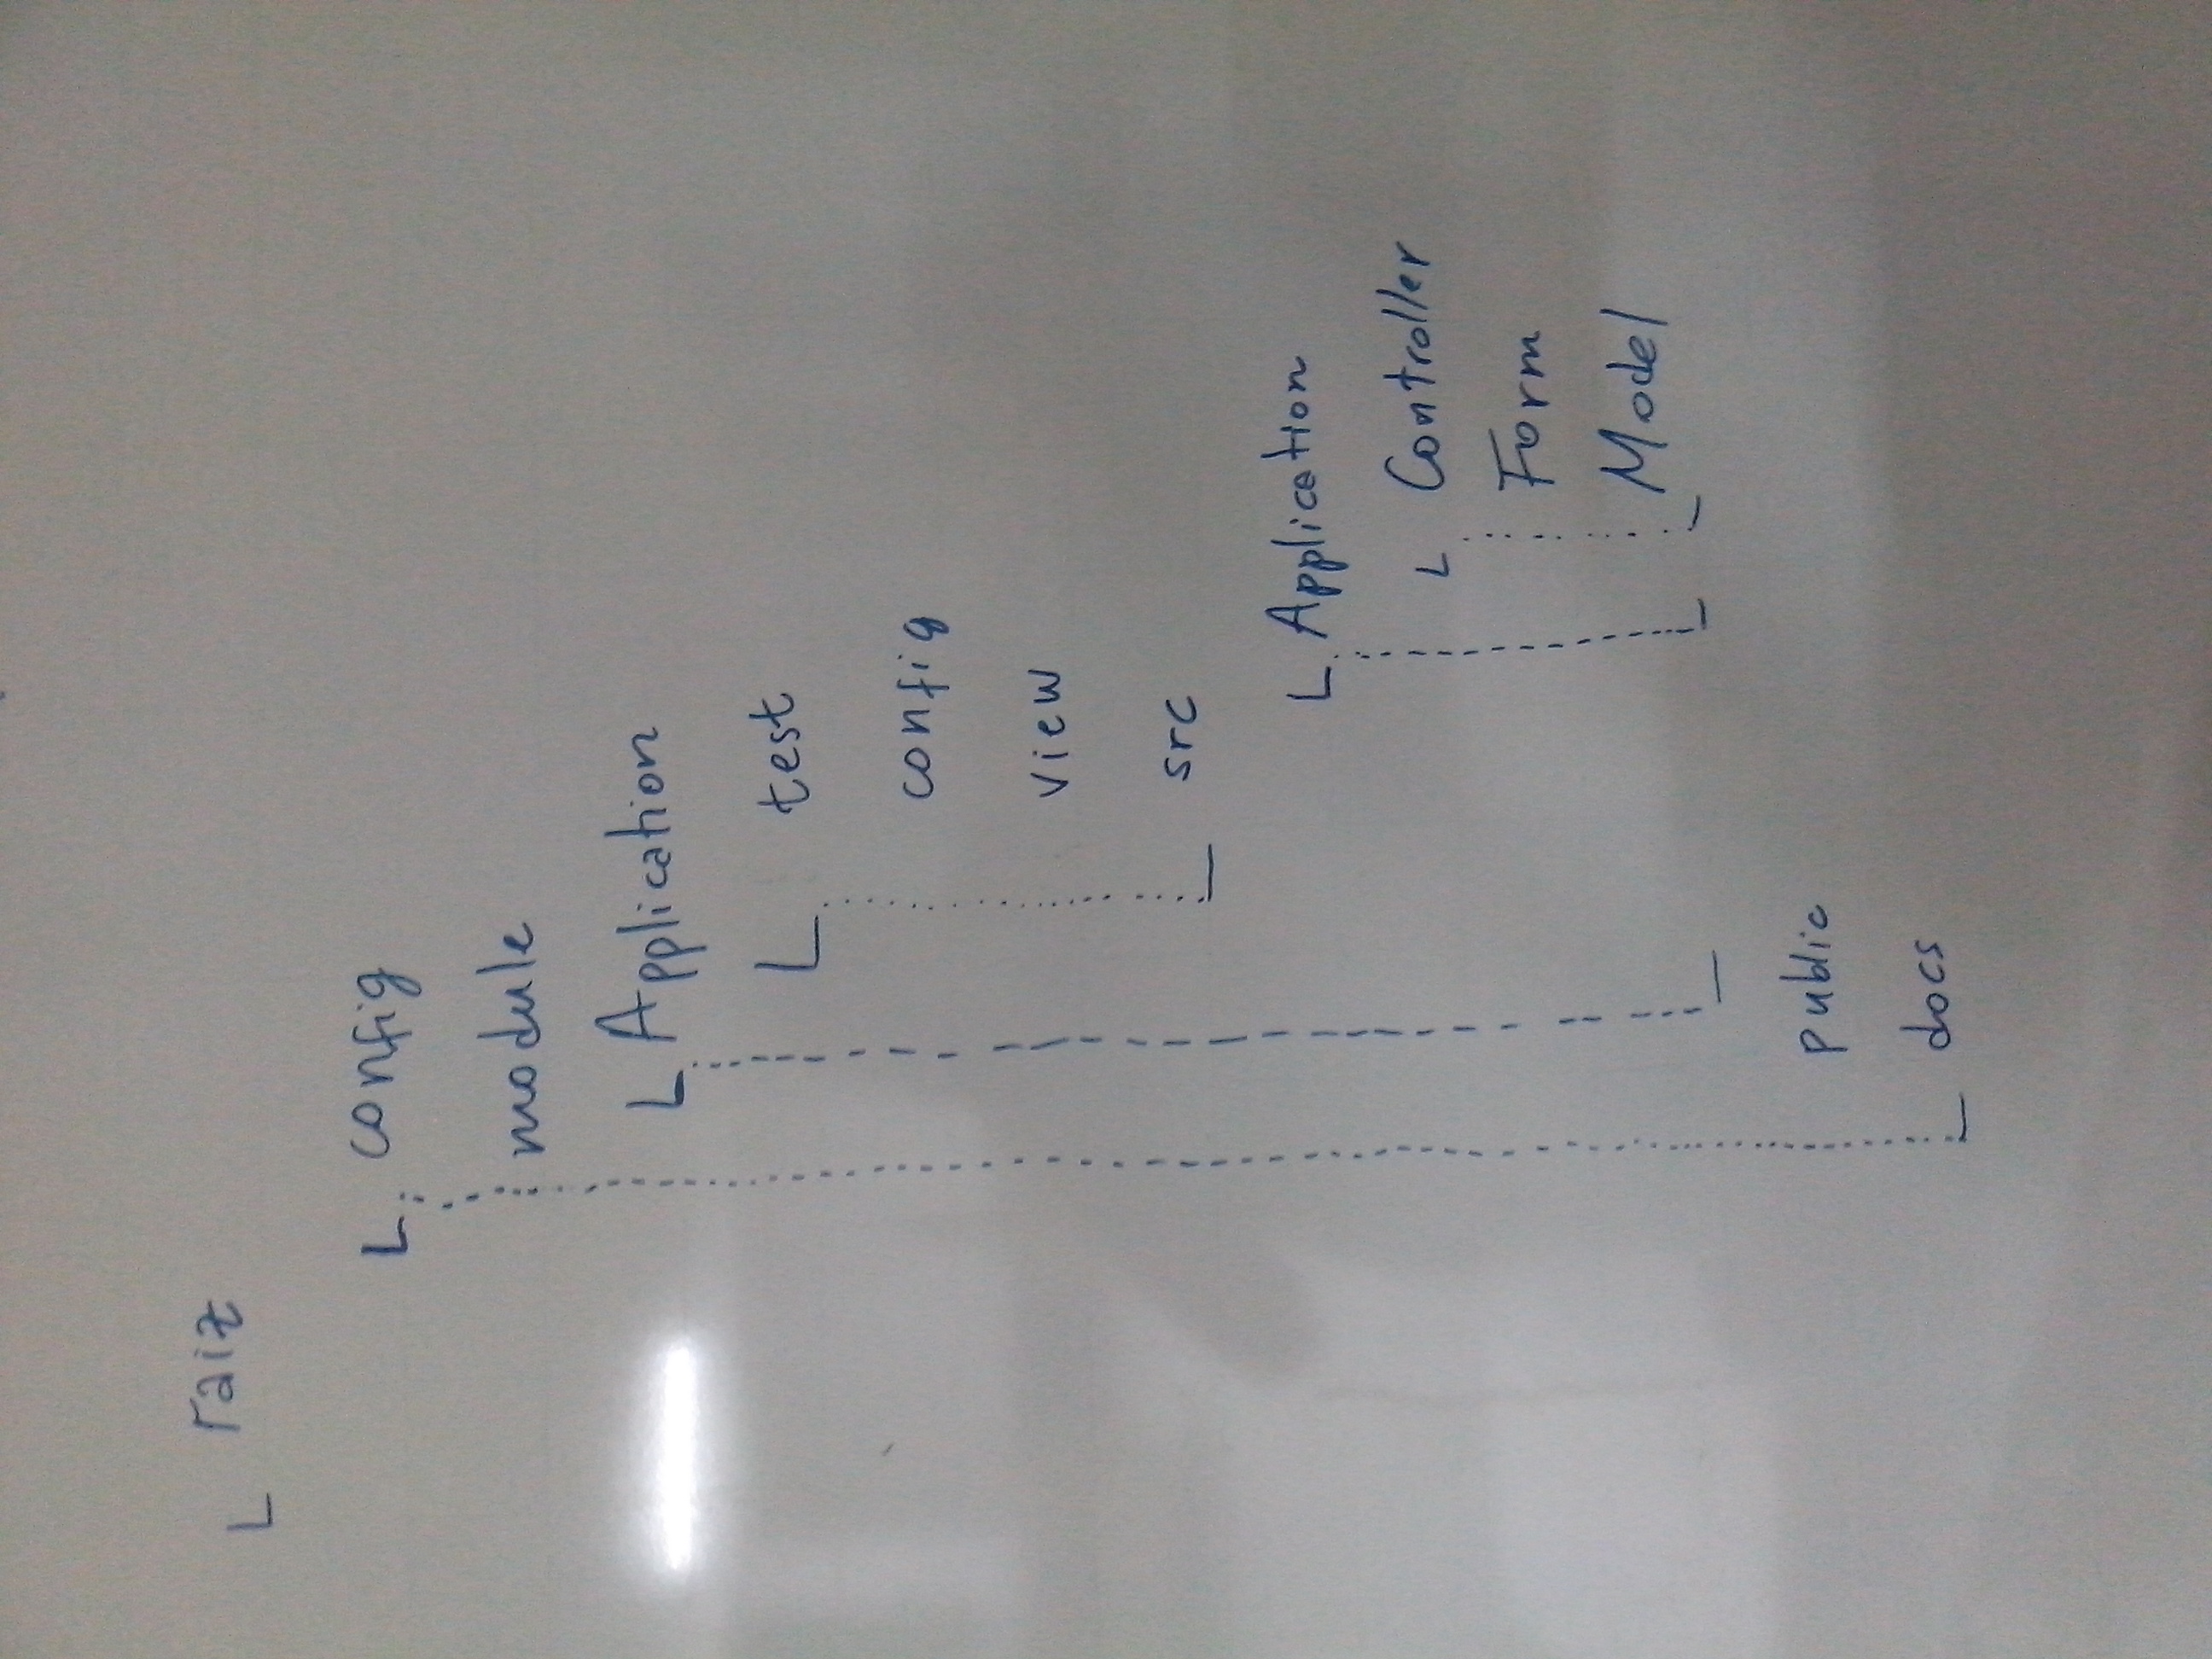 raiz
config
module
Application
test
config
view
src
Application
Controller
Form
Model
public
docs